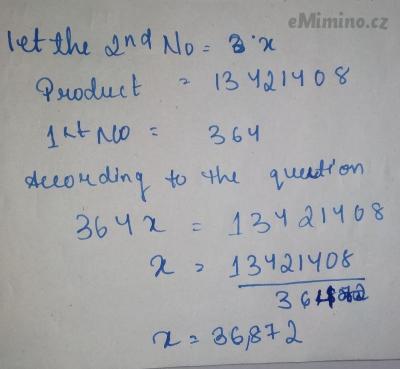 eMimino.cz
let the 2nd No = x
Product = 13421408
1st No = 364
According to the question
364x = 13421408
x = 13421408
36
x = 36,872